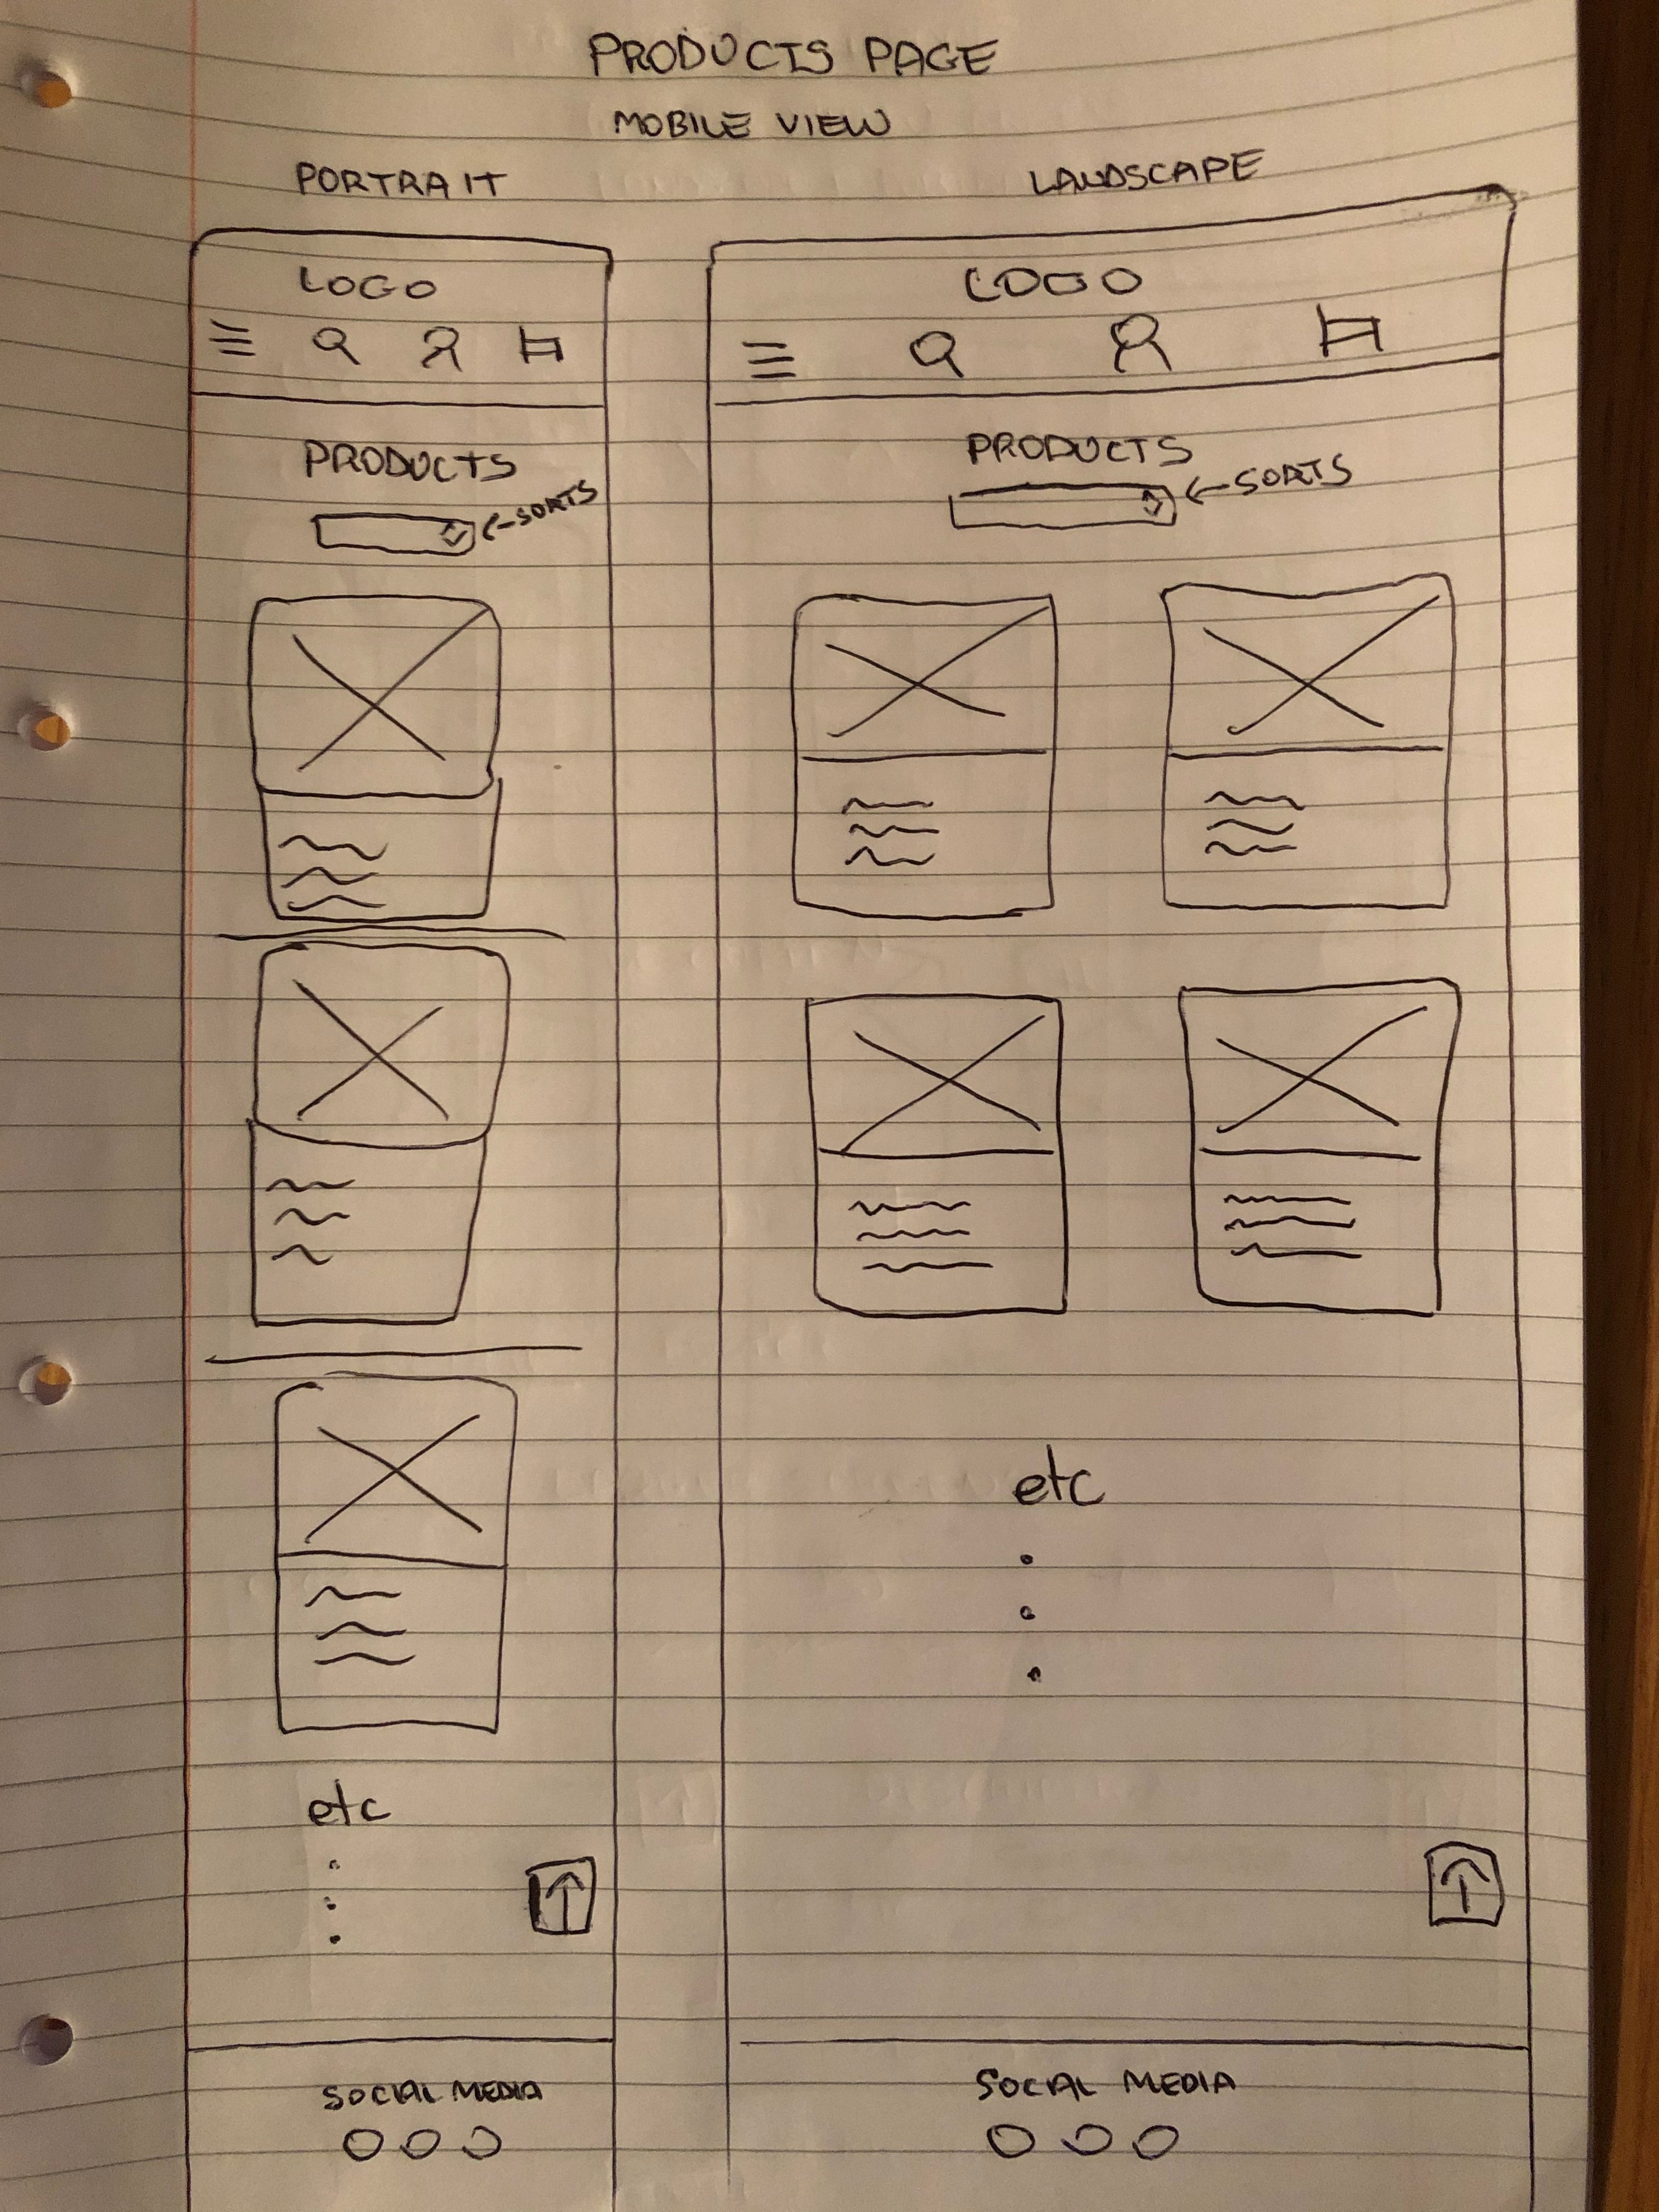 PRODUCTS PAGE
MOBILE VIEW
PORTRAIT
LOGO
PRODUCTS
←SORTS
etc
SOCIAL MEDIA
LANDSCAPE
LOGO
PRODUCTS
←SORTS
etc
SOCIAL MEDIA